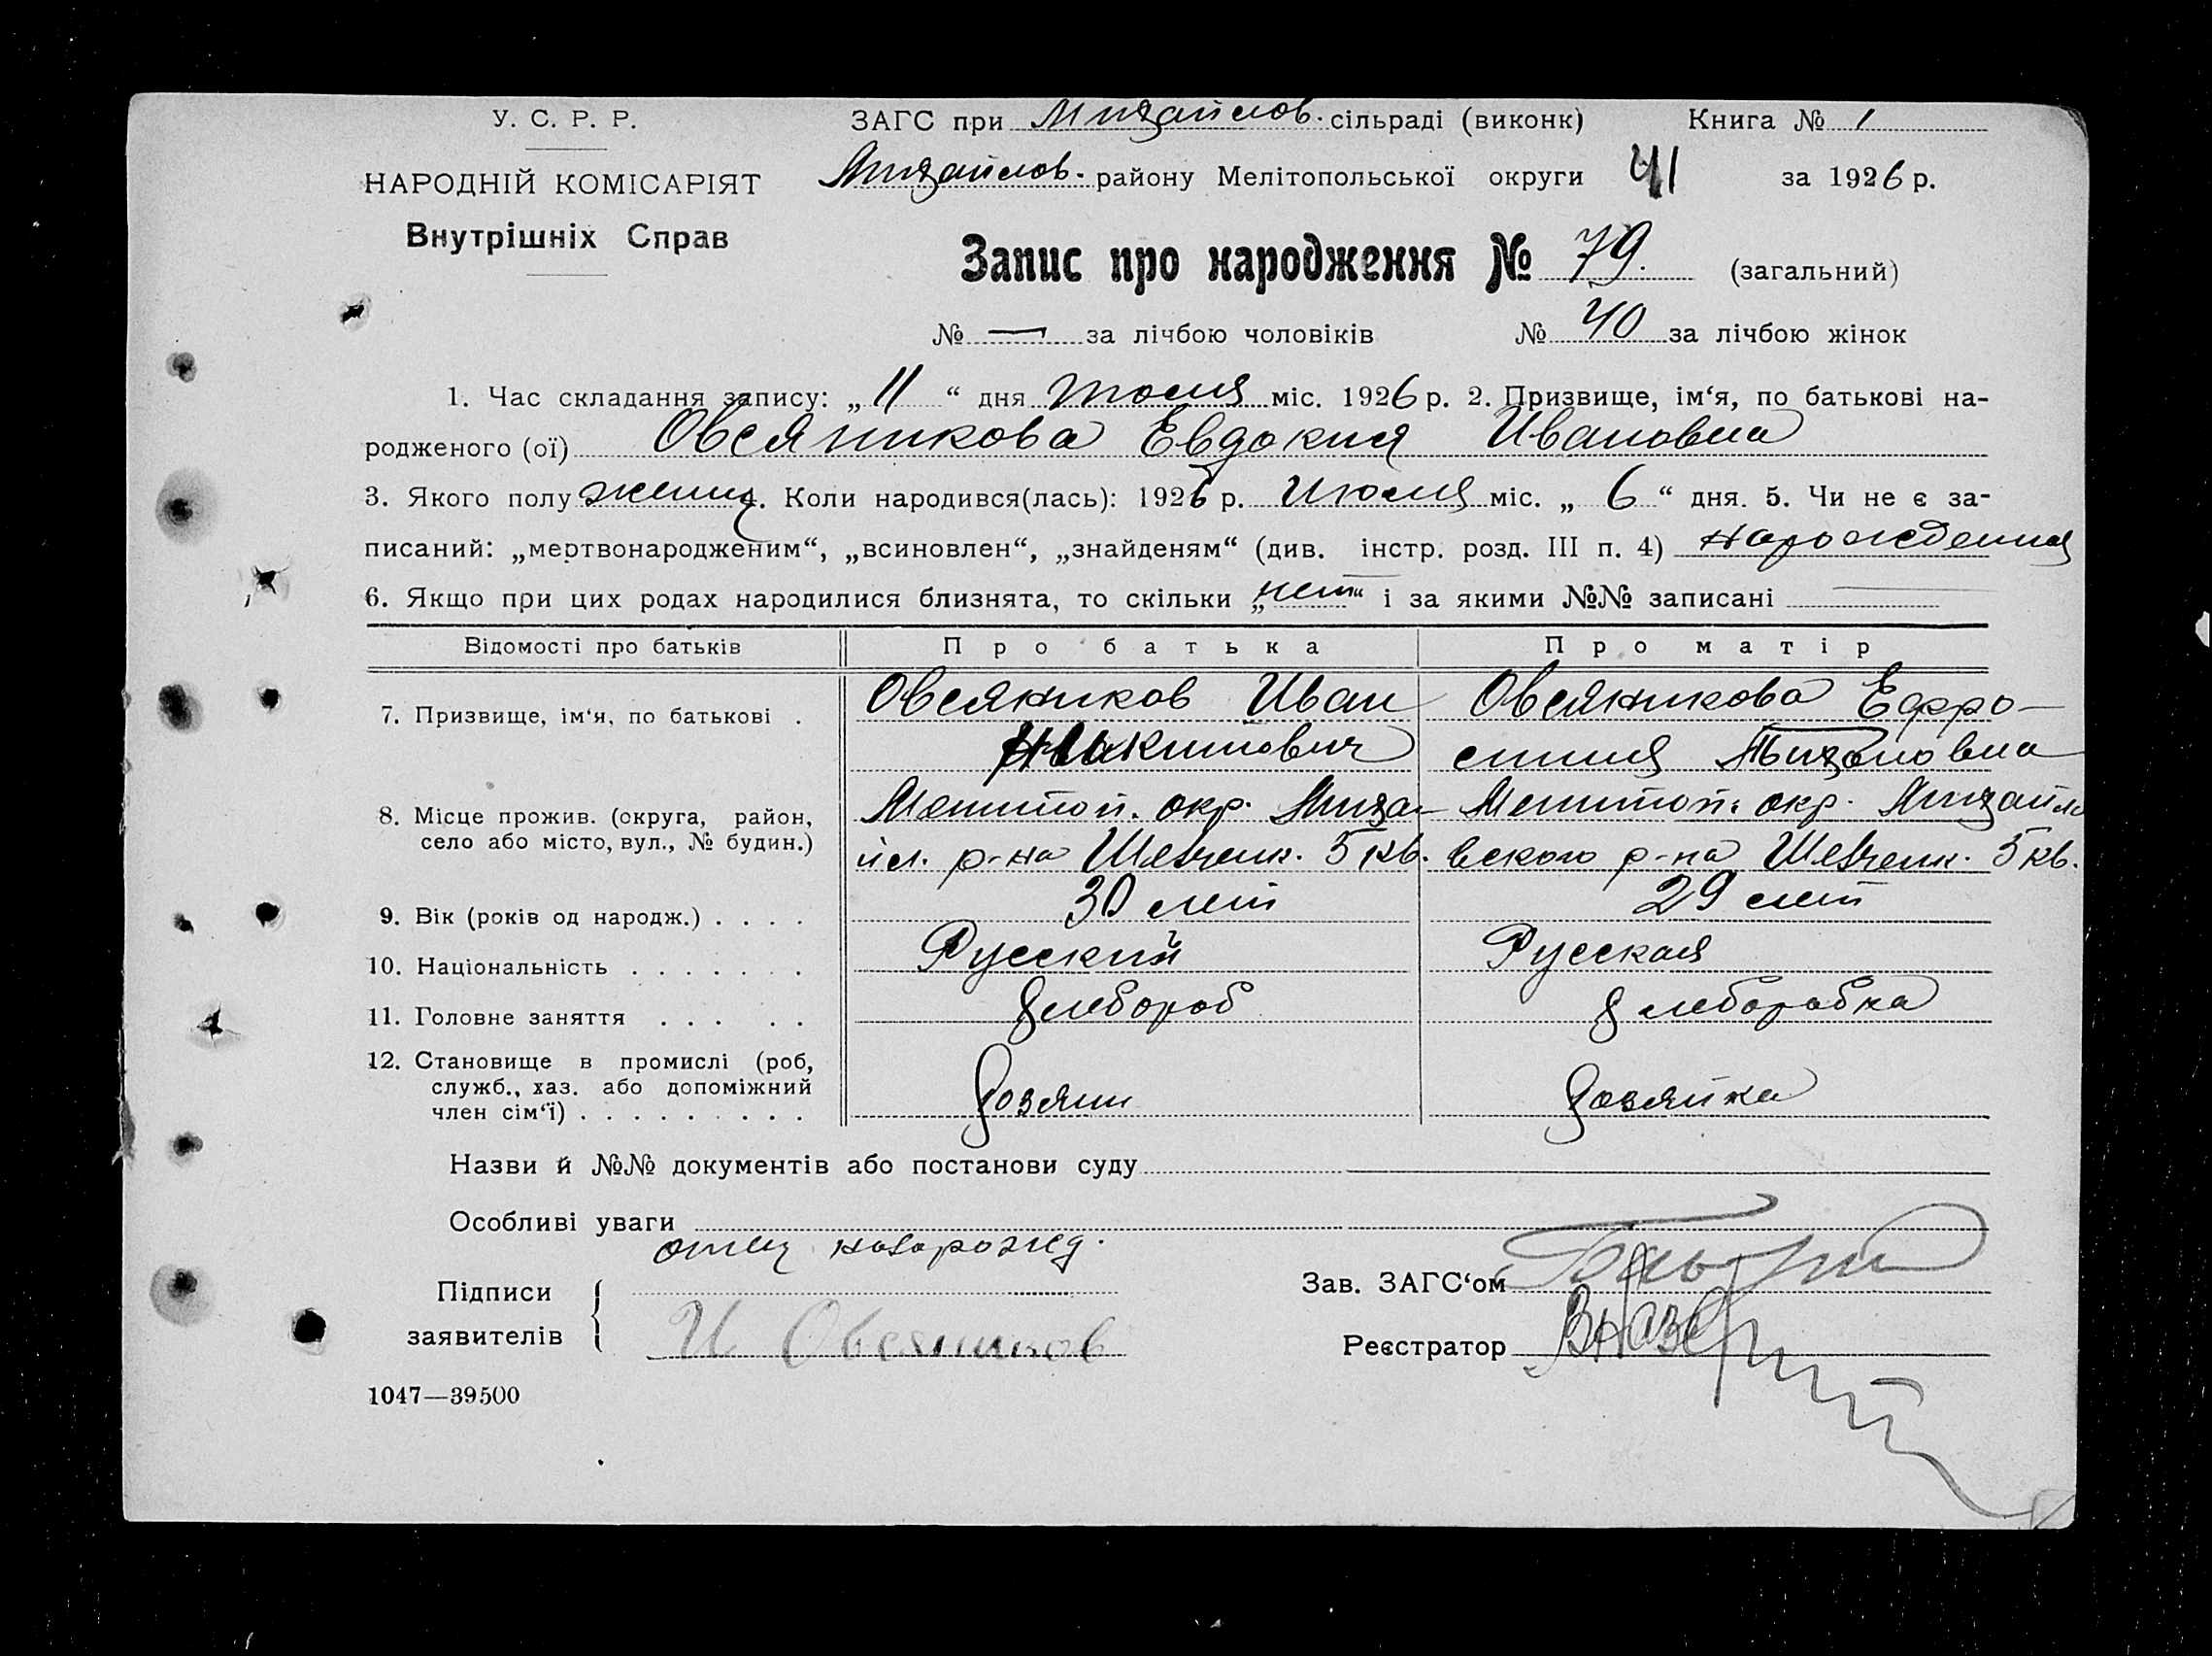 У. С. Р. Р.
ЗАГС при Михайлов. сільраді (виконк) Книга № 1
НАРОДНІЙ КОМІСАРІЯТ
Михайлов. району Мелітопольської округи 41 за 1926 р.
Внутрішніх Справ
Запис про народження № 79. (загальний)
№ — за лічбою чоловіків № 40 за лічбою жінок
1. Час складання запису: „11“ дня Июля міс. 1926 р. 2. Призвище, ім‘я, по батькові на-
родженого (ої) Овсяникова Евдокия Ивановна
3. Якого полу женщ. Коли народився(лась): 1926 р. Июля міс. „6“ дня. 5. Чи не є за-
писаний: „мертвонародженим“, „всиновлен“, „знайденям“ (див. інстр. розд. III п. 4)
6. Якщо при цих родах народилися близнята, то скільки „нет“ і за якими №№ записані —
Відомості про батьків Про батька Про матір
7. Призвище, ім‘я, по батькові . Овсяников Иван Овсяникова Ефро-
синия
8. Місце прожив. (округа, район, село або місто, вул., № будин.) Мелитоп. окр. Миха- Мелитоп. окр. Михайло
йл. р-на Шевченк. 5 кв. вского р-на Шевченк. 5 кв.
9. Вік (років од народж.) . . . . 30 лет 29 лет
10. Національність . . . . . . . Русский Русская
11. Головне заняття . . . . . хлебороб хлеборобка
12. Становище в промислі (роб,
служб., хаз. або допоміжний
член сім‘ї) . . . . . . . . . Хозяин Хозяйка
Назви й №№ документів або постанови суду
Особливі уваги
отец новорожд.
Підписи
заявителів
И Овсянников
Зав. ЗАГС‘ом
Реєстратор
1047—39500